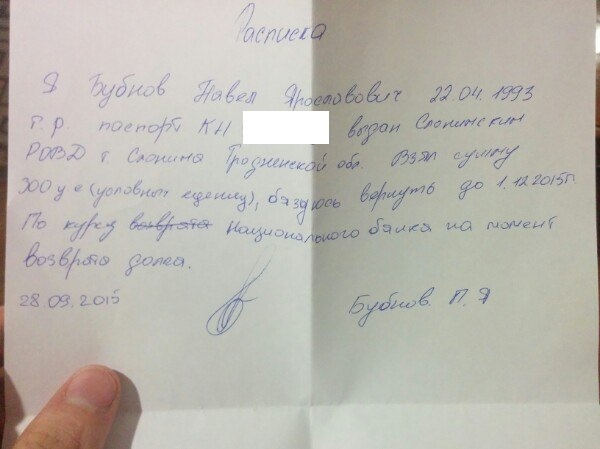 Расписка
Я Бубнов Павел Ярославович 22.04.1993
г.р. паспорт КН выдан Слонимским
РОВД г. Слонима Гродненской обл. Взял сумму
300 у е (условных единиц), обязуюсь вернуть до 1.12.2015г.
По курсу возврата Национального банка на момент
возврата долга.
28.09.2015 Бубнов. П. Я